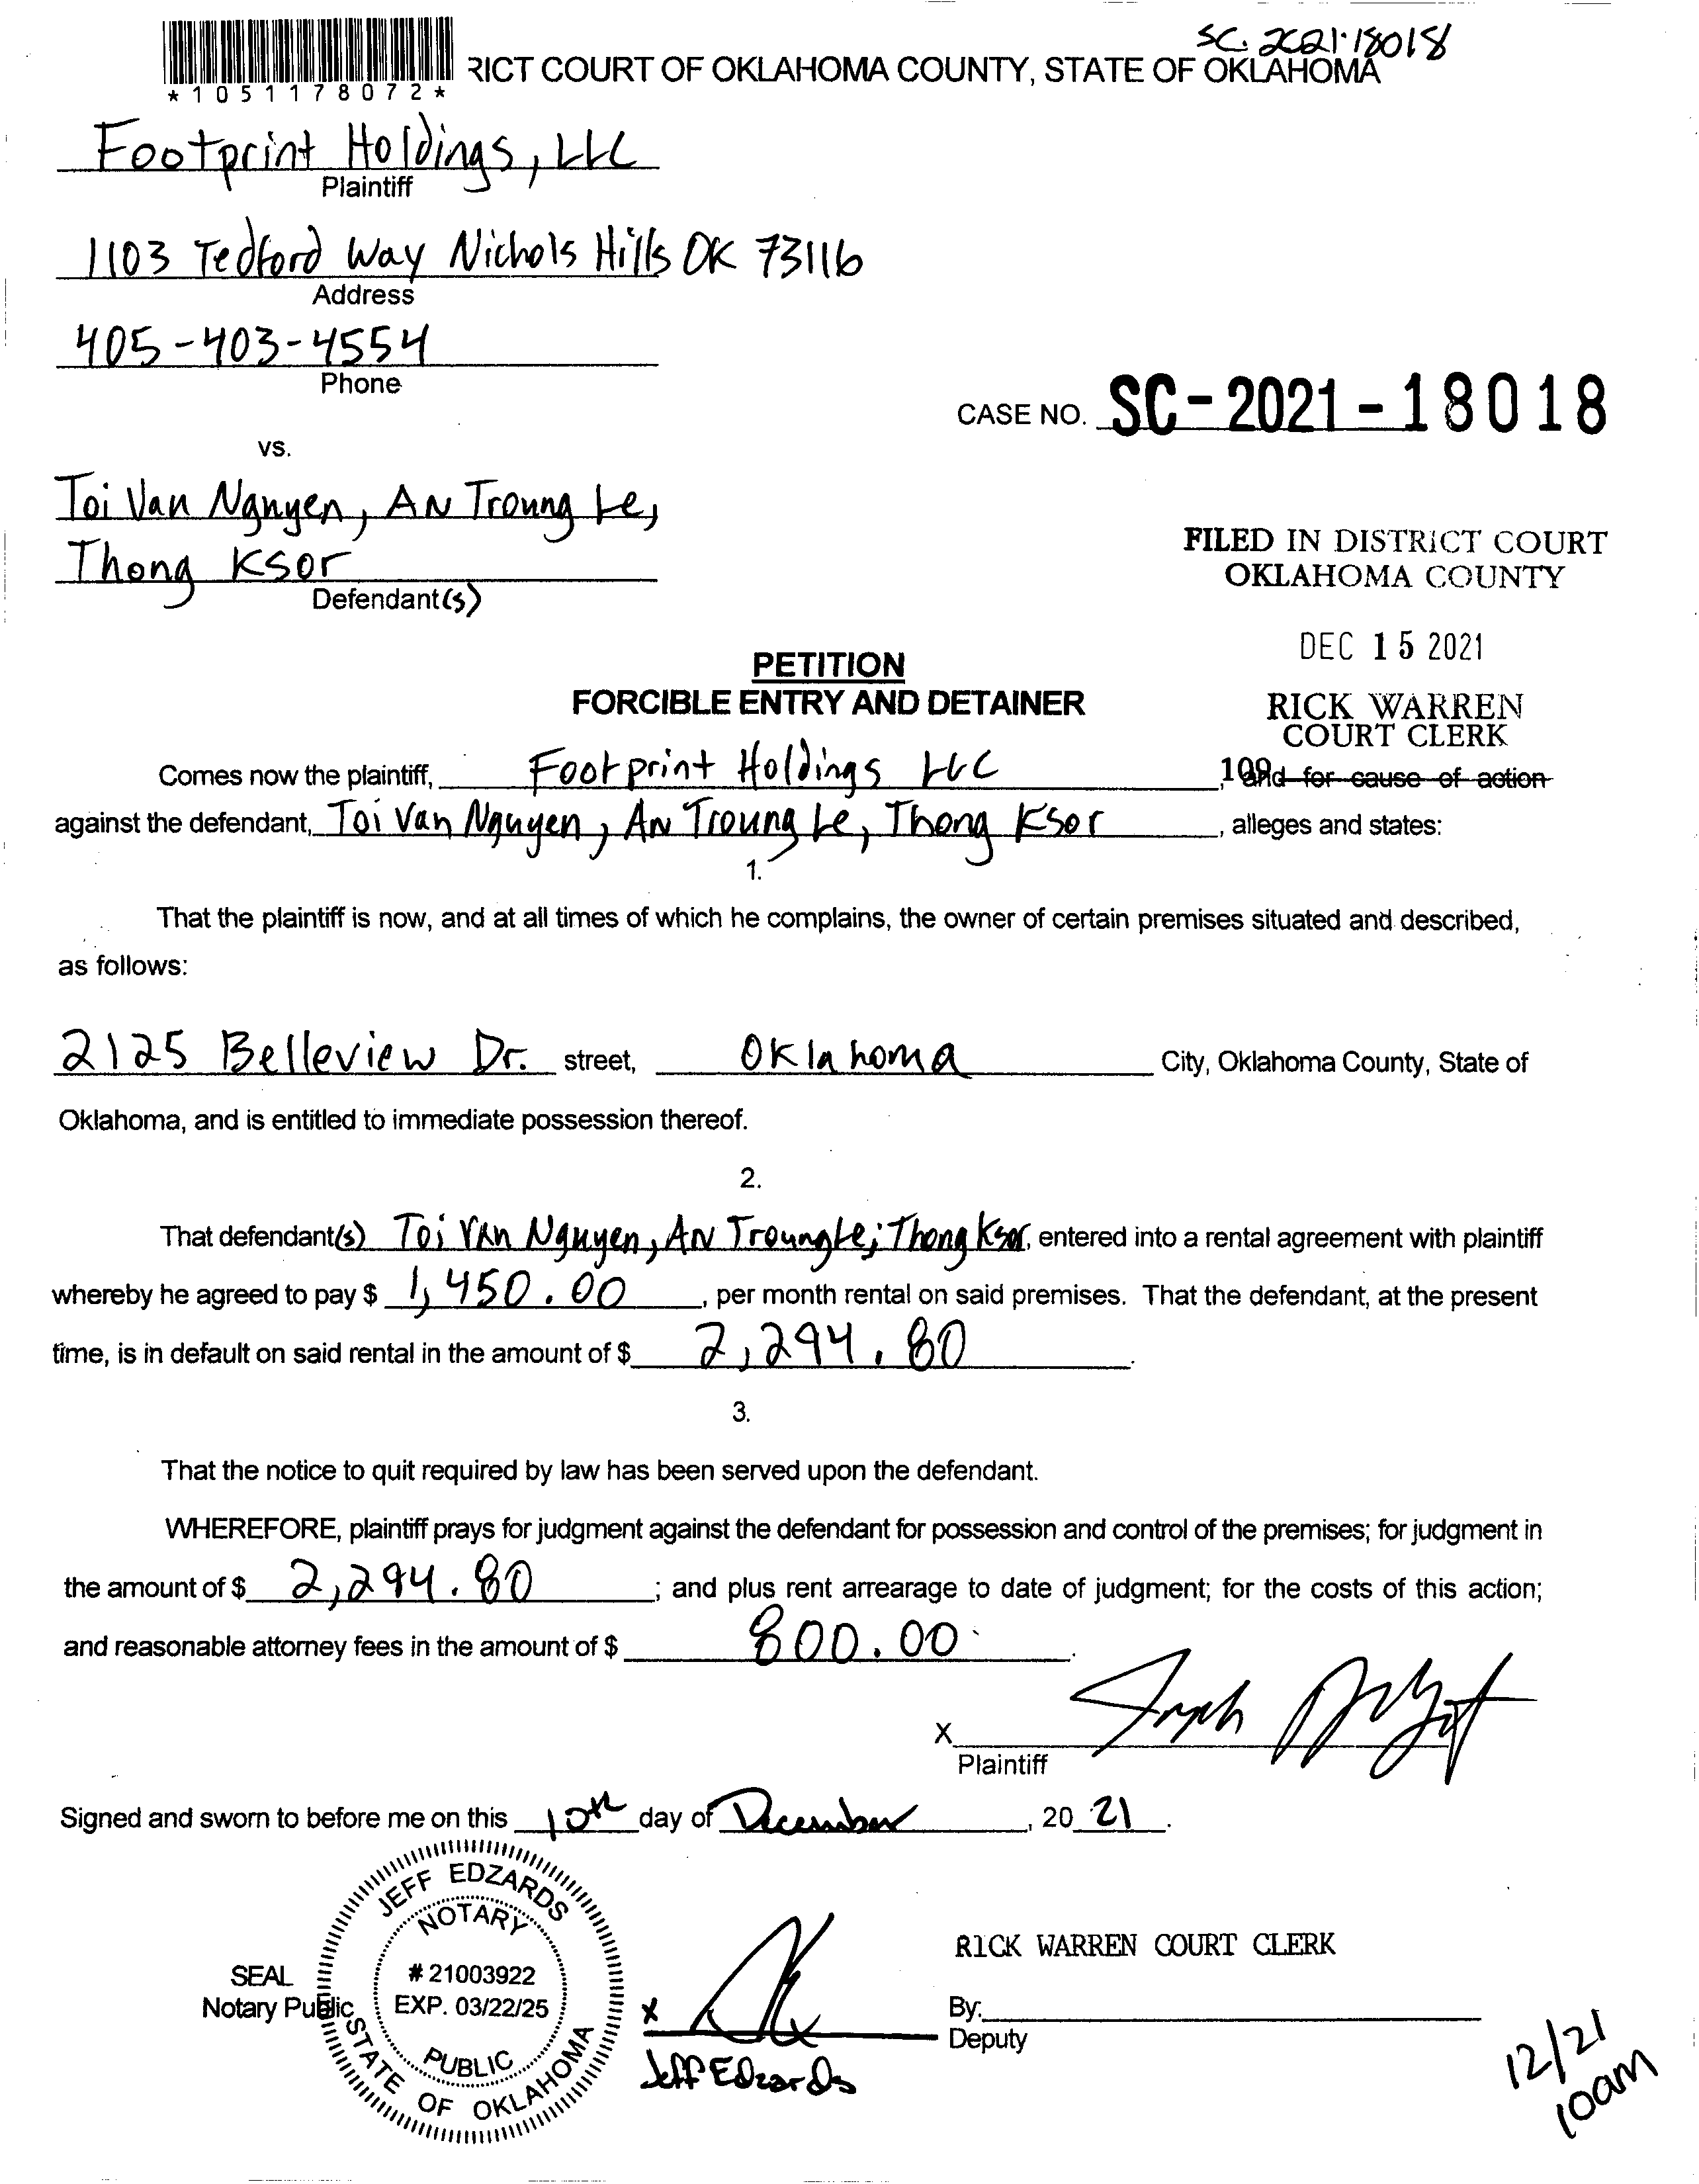 SC-2021-18018
*1051178072*
RICT COURT OF OKLAHOMA COUNTY, STATE OF OKLAHOMA
Footprint Holdings, LLC
Plaintiff
1103 Tedford Way Nichols Hills OK 73116
Address
405-403-4554
Phone
CASE NO. SC-2021-18018
vs.
Toi Van Nguyen, AN Troung Le,
Thong Ksor
Defendant(s)
FILED IN DISTRICT COURT
OKLAHOMA COUNTY
DEC 15 2021
PETITION
FORCIBLE ENTRY AND DETAINER
RICK WARREN
COURT CLERK
Comes now the plaintiff, Footprint Holdings LLC, and for cause of action
109
against the defendant, Toi Van Nguyen, AN Troung Le, Thong Ksor, alleges and states:
1.
That the plaintiff is now, and at all times of which he complains, the owner of certain premises situated and described,
as follows:
2125 Belleview Dr. street, Oklahoma City, Oklahoma County, State of
Oklahoma, and is entitled to immediate possession thereof.
2.
That defendant(s) Toi Van Nguyen, AN Troung Le, Thong Ksor, entered into a rental agreement with plaintiff
whereby he agreed to pay $ 1,450.00, per month rental on said premises. That the defendant, at the present
time, is in default on said rental in the amount of $ 2,294.80.
3.
That the notice to quit required by law has been served upon the defendant.
WHEREFORE, plaintiff prays for judgment against the defendant for possession and control of the premises; for judgment in
the amount of $ 2,294.80; and plus rent arrearage to date of judgment; for the costs of this action;
and reasonable attorney fees in the amount of $ 800.00.
X
Plaintiff
Signed and sworn to before me on this 10th day of December, 20 21.
JEFF EDZARDS
NOTARY
# 21003922
EXP. 03/22/25
PUBLIC
STATE OF OKLAHOMA
SEAL
Notary Public
x
Jeff Edzards
RICK WARREN COURT CLERK
By:
Deputy
12/21
10am